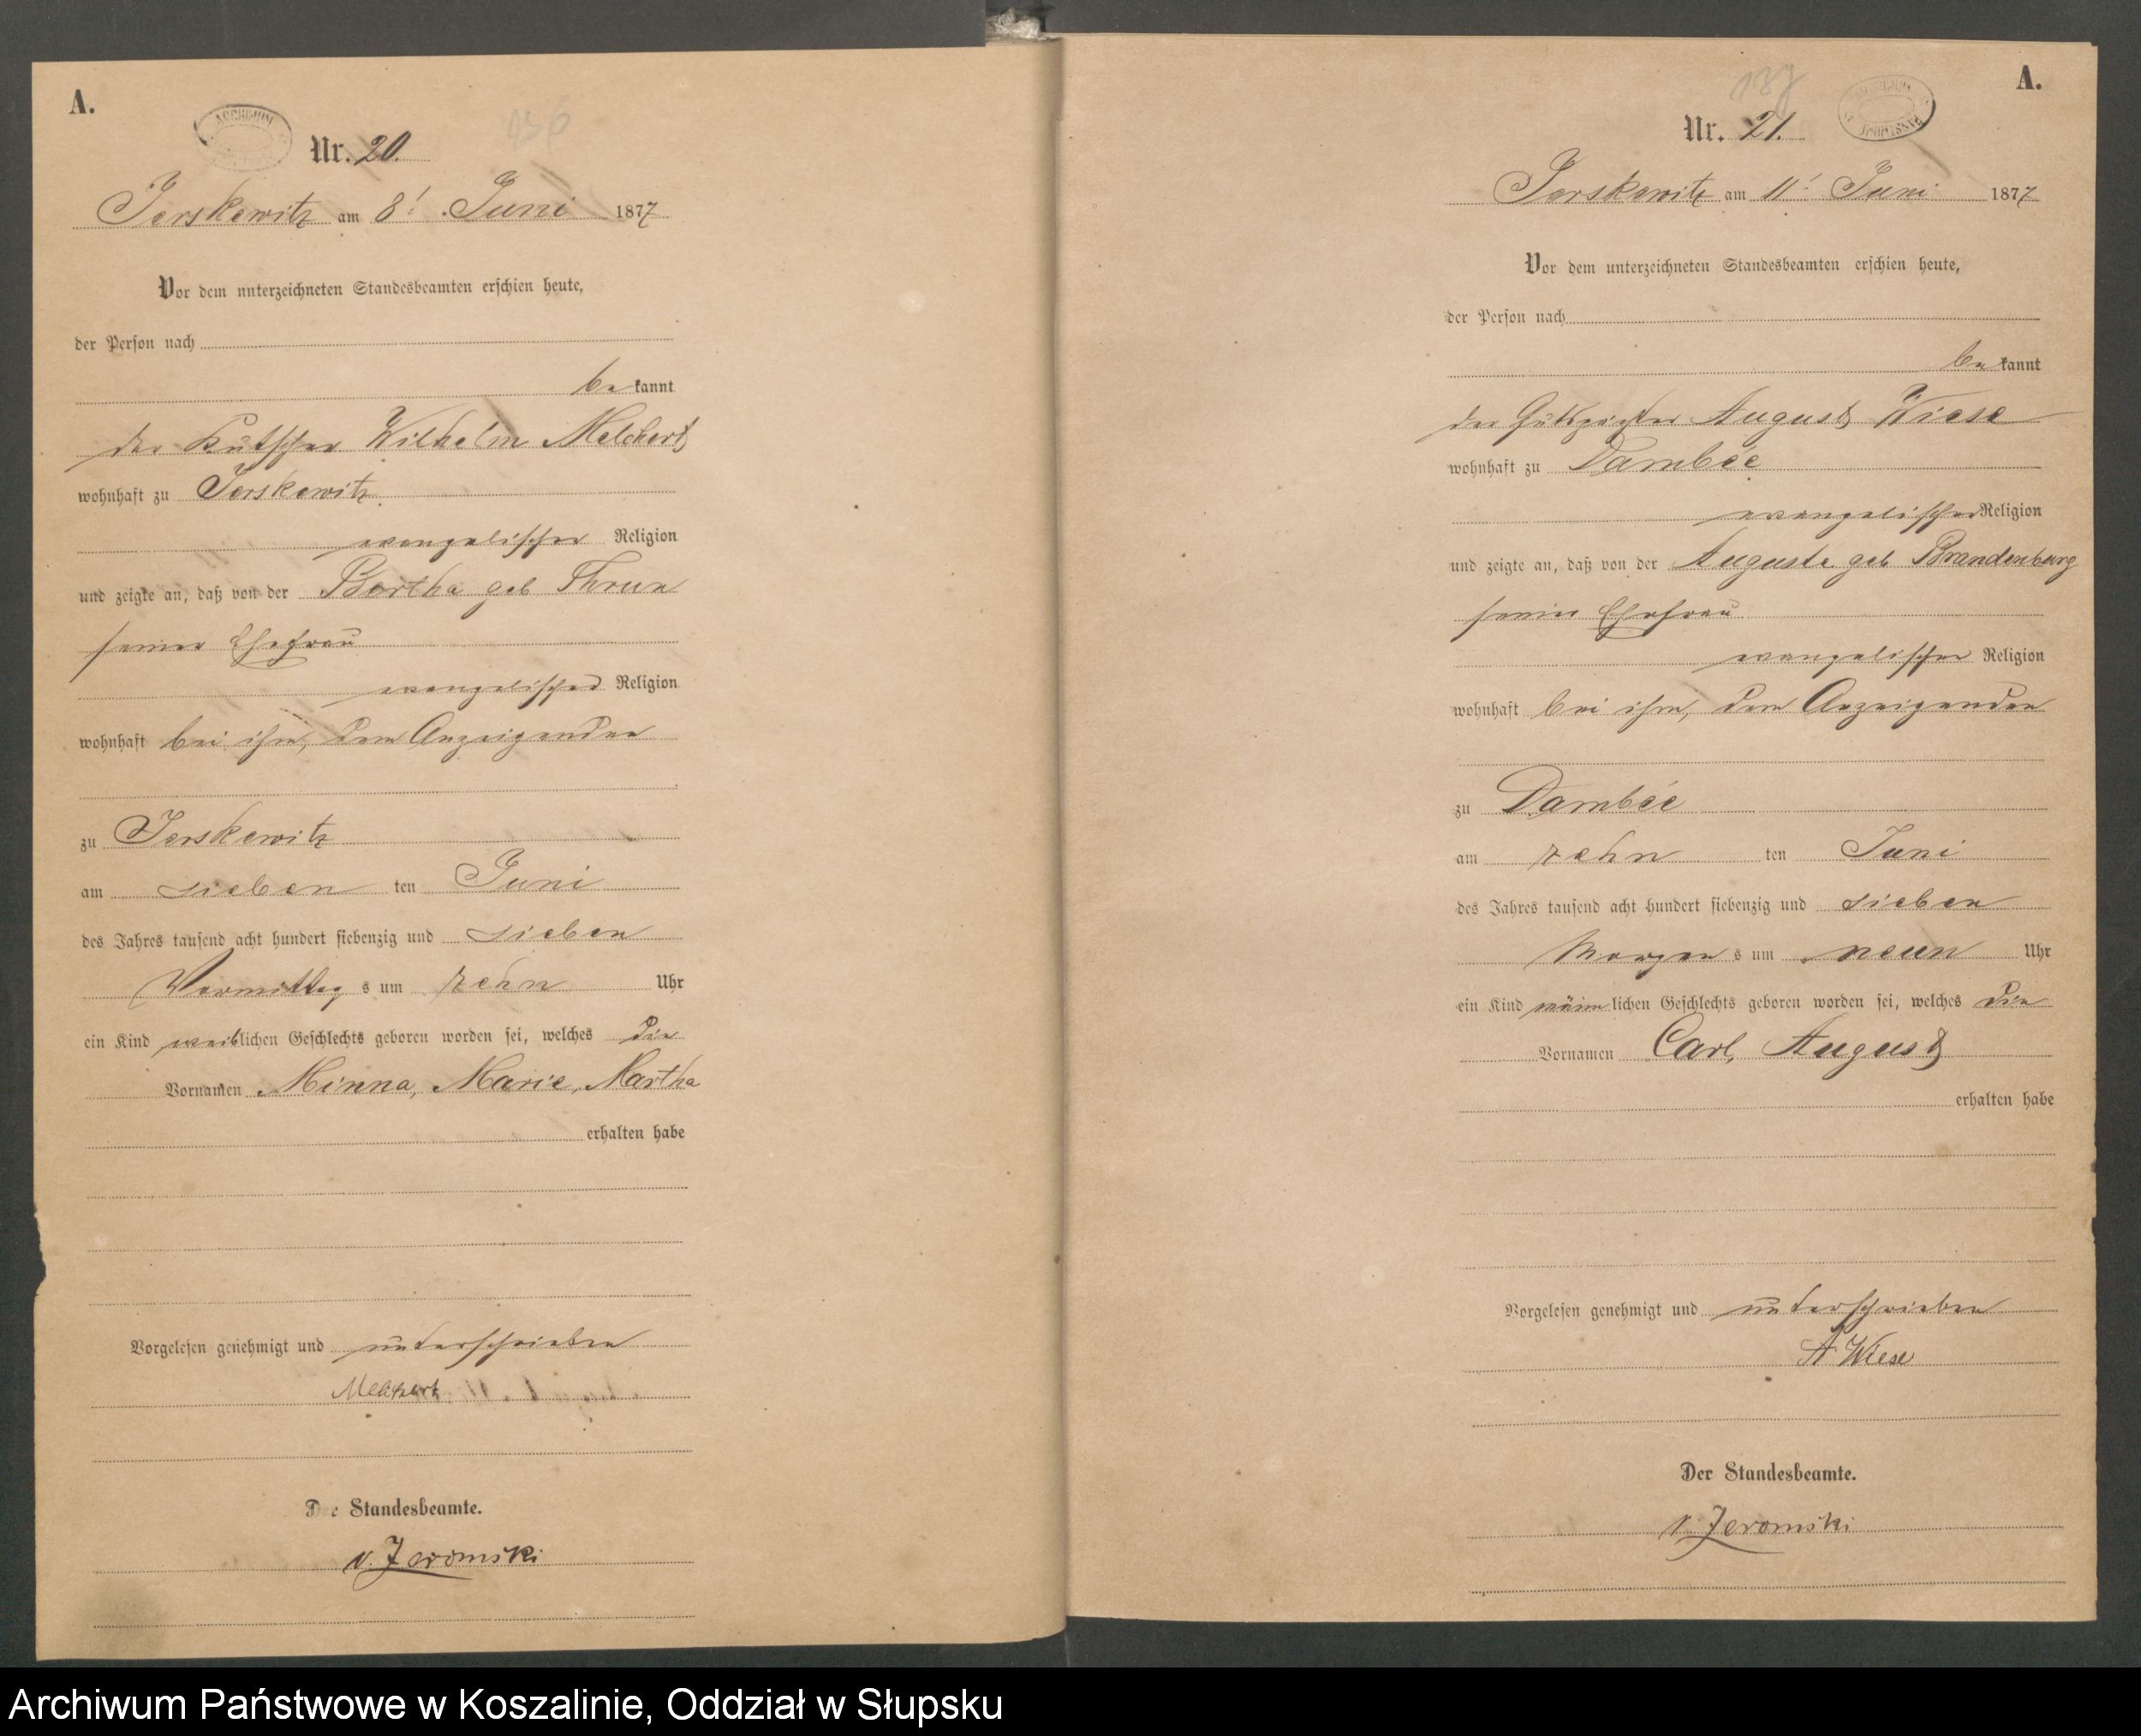 A.
ARCHIWUM
Nr. 20.
Jerskewitz am 8t. Juni 1877
Vor dem unterzeichneten Standesbeamten erschien heute,
der Person nach
bekannt
der Kutscher Wilhelm Melchert
wohnhaft zu Jerskewitz
evangelischer Religion
und zeigte an, daß von der Bertha geb Thrun
seiner Ehefrau
evangelischer Religion
wohnhaft bei ihm, dem Anzeigenden
zu Jerskewitz
am sieben ten Juni
des Jahres tausend acht hundert siebenzig und sieben
Vormittag s um zehn Uhr
ein Kind weiblichen Geschlechts geboren worden sei, welches die
Vornamen Minna, Marie, Martha
erhalten habe
Vorgelesen genehmigt und unterschrieben
Melchert
De Standesbeamte.
v. Jeromski
137
A.
Nr. 21.
Jerskewitz am 11t. Juni 1877
Vor dem unterzeichneten Standesbeamten erschien heute,
der Person nach
bekannt
der Gutspächter August Wiese
wohnhaft zu Dambée
evangelischer Religion
und zeigte an, daß von der Auguste geb Brandenburg
seiner Ehefrau
evangelischer Religion
wohnhaft bei ihm, dem Anzeigenden
zu Dambée
am zehn ten Juni
des Jahres tausend acht hundert siebenzig und sieben
Morgen s um neun Uhr
ein Kind männlichen Geschlechts geboren worden sei, welches die
Vornamen Carl, August
erhalten habe
Vorgelesen genehmigt und unterschrieben
A Wiese
Der Standesbeamte.
v. Jeromski
Archiwum Państwowe w Koszalinie, Oddział w Słupsku